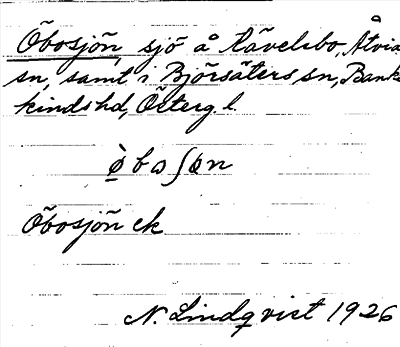 Öbosjön, sjö å Rävelsbo, Åtvids
sn, samt i Björsäters sn, Bank-
kinds hd, Österg. l.
ø̀ b ω ʃ ø n
Öbosjön ek
N. Lindqvist 1926